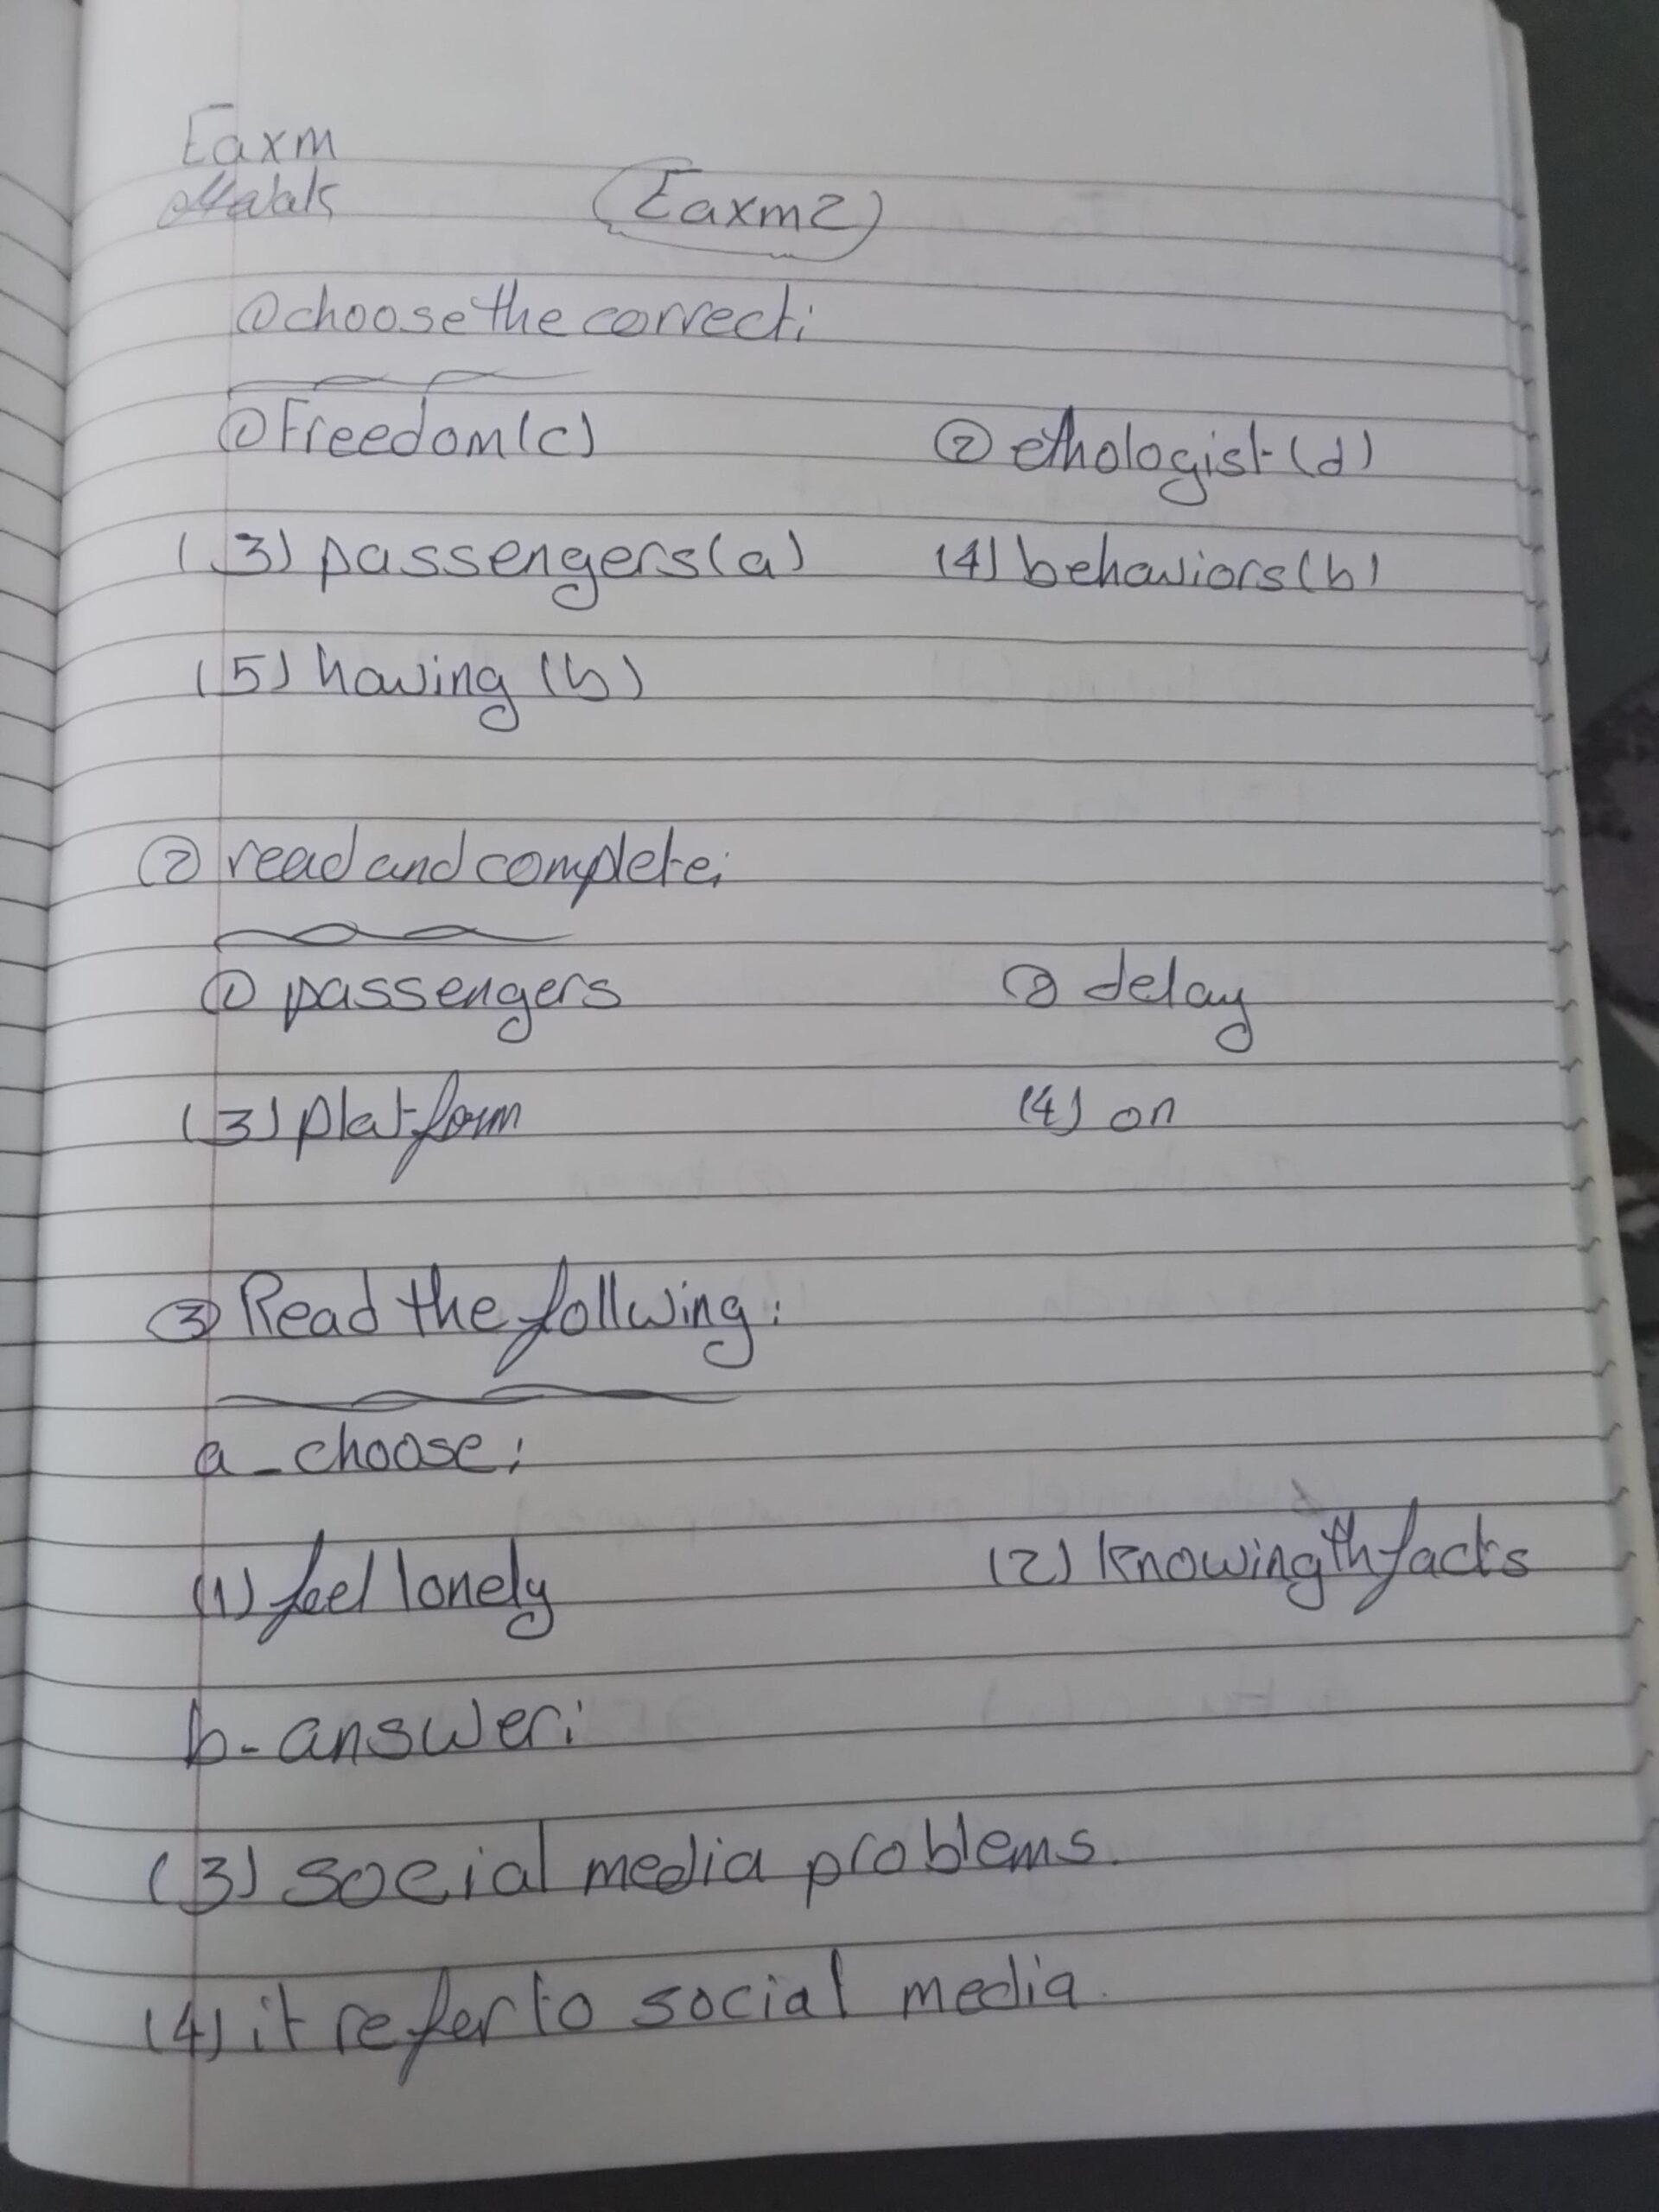 Eaxm
(Eaxm2)
① choose the correct:
① Freedom(c) ② ethologist (d)
(3) passengers(a) (4) behaviors(b)
(5) having (b)
② read and complete:
① passengers ② delay
(3) platform (4) on
③ Read the follwing:
a - choose:
(1) feel lonely (2) knowing th facts
b- answer:
(3) social media problems.
(4) it refer to social media.